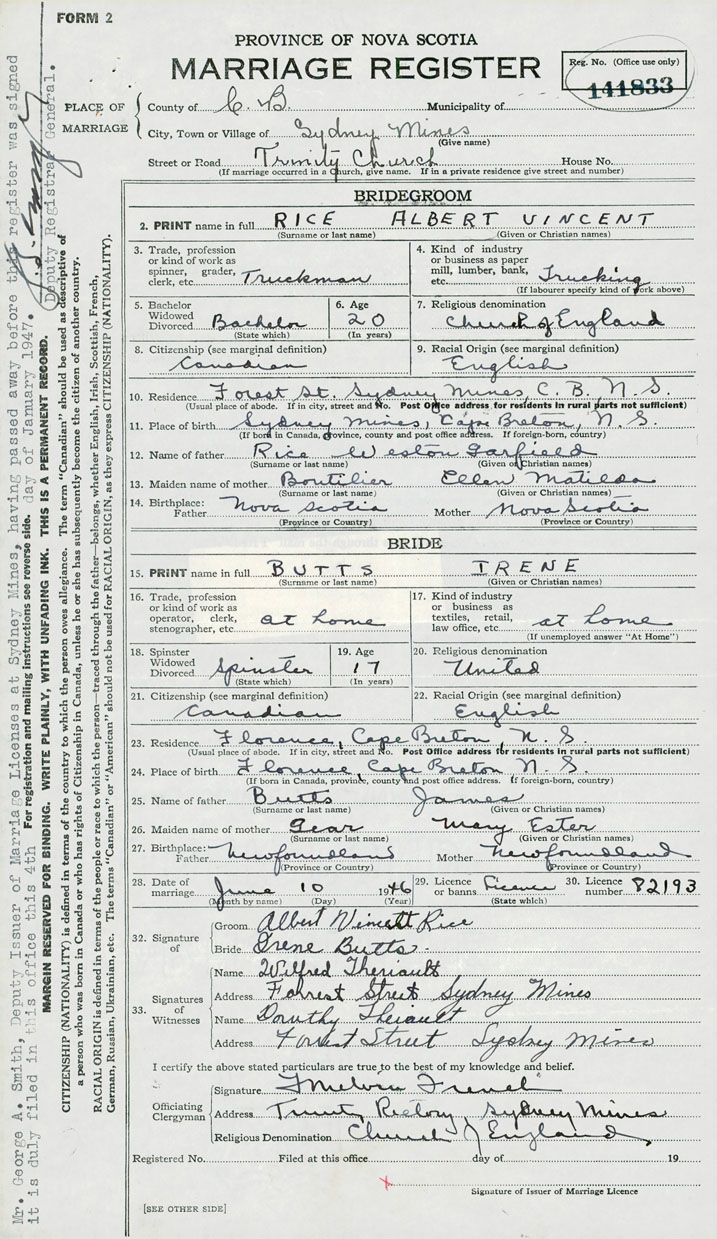 FORM 2
PROVINCE OF NOVA SCOTIA
MARRIAGE REGISTER
Reg. No. (Office use only)
141833
PLACE OF MARRIAGE
County of C. B. Municipality of
City, Town or Village of Sydney Mines
(Give name)
Street or Road Trinity Church House No.
(If marriage occurred in a Church, give name. If in a private residence give street and number)
BRIDEGROOM
2. PRINT name in full RICE ALBERT VINCENT
(Surname or last name) (Given or Christian names)
3. Trade, profession or kind of work as spinner, grader, clerk, etc. Truckman
4. Kind of industry or business as paper mill, lumber, bank, etc. Trucking
(If labourer specify kind of work above)
5. Bachelor Widowed Divorced Bachelor
(State which)
6. Age 20
(In years)
7. Religious denomination
Church of England
8. Citizenship (see marginal definition)
Canadian
9. Racial Origin (see marginal definition)
English
10. Residence Forest St. Sydney Mines, C. B., N. S.
(Usual place of abode. If in city, street and No. Post Office address for residents in rural parts not sufficient)
11. Place of birth Sydney Mines, Cape Breton, N. S.
(If born in Canada, province, county and post office address. If foreign-born, country)
12. Name of father Rice Weston Garfield
(Surname or last name) (Given or Christian names)
13. Maiden name of mother Boutilier Ellen Matilda
(Surname or last name) (Given or Christian names)
14. Birthplace: Father Nova Scotia Mother Nova Scotia
(Province or Country) (Province or Country)
BRIDE
15. PRINT name in full BUTTS IRENE
(Surname or last name) (Given or Christian names)
16. Trade, profession or kind of work as operator, clerk, stenographer, etc. at home
17. Kind of industry or business as textiles, retail, law office, etc. at home
(If unemployed answer "At Home")
18. Spinster Widowed Divorced Spinster
(State which)
19. Age 17
(In years)
20. Religious denomination
United
21. Citizenship (see marginal definition)
Canadian
22. Racial Origin (see marginal definition)
English
23. Residence Florence, Cape Breton, N. S.
(Usual place of abode. If in city, street and No. Post Office address for residents in rural parts not sufficient)
24. Place of birth Florence, Cape Breton N. S.
(If born in Canada, province, county and post office address. If foreign-born, country)
25. Name of father Butts James
(Surname or last name) (Given or Christian names)
26. Maiden name of mother Gear Mary Ester
(Surname or last name) (Given or Christian names)
27. Birthplace: Father Newfoundland Mother Newfoundland
(Province or Country) (Province or Country)
28. Date of marriage June 10 1946
(Month by name) (Day) (Year)
29. Licence or banns Licence
(State which)
30. Licence number 82193
32. Signature of
Groom Albert Vincett Rice
Bride Irene Butts
33. Signatures of Witnesses
Name Wilfred Theriault
Address Forrest Street Sydney Mines
Name Dorothy Theiault
Address Forrest Street Sydney Mines
I certify the above stated particulars are true to the best of my knowledge and belief.
Officiating Clergyman
Signature Melvin French
Address Trinity Rectory, Sydney Mines
Religious Denomination Church of England
Registered No. Filed at this office day of 19
Signature of Issuer of Marriage Licence
[SEE OTHER SIDE]
Mr. George A. Smith, Deputy Issuer of Marriage Licenses at Sydney Mines, having passed away before this register was signed
it is duly filed in this office this 4th day of January 1947.
Deputy Registrar General.
For registration and mailing instructions see reverse side.
MARGIN RESERVED FOR BINDING. WRITE PLAINLY, WITH UNFADING INK. THIS IS A PERMANENT RECORD.
CITIZENSHIP (NATIONALITY) is defined in terms of the country to which the person owes allegiance. The term "Canadian" should be used as descriptive of
a person who was born in Canada or who has rights of Citizenship in Canada, unless he or she has subsequently become the citizen of another country.
RACIAL ORIGIN is defined in terms of the people or race to which the person—traced through the father—belongs, whether English, Irish, Scottish, French,
German, Russian, Ukrainian, etc. The terms "Canadian" or "American" should not be used for RACIAL ORIGIN, as they express CITIZENSHIP (NATIONALITY).